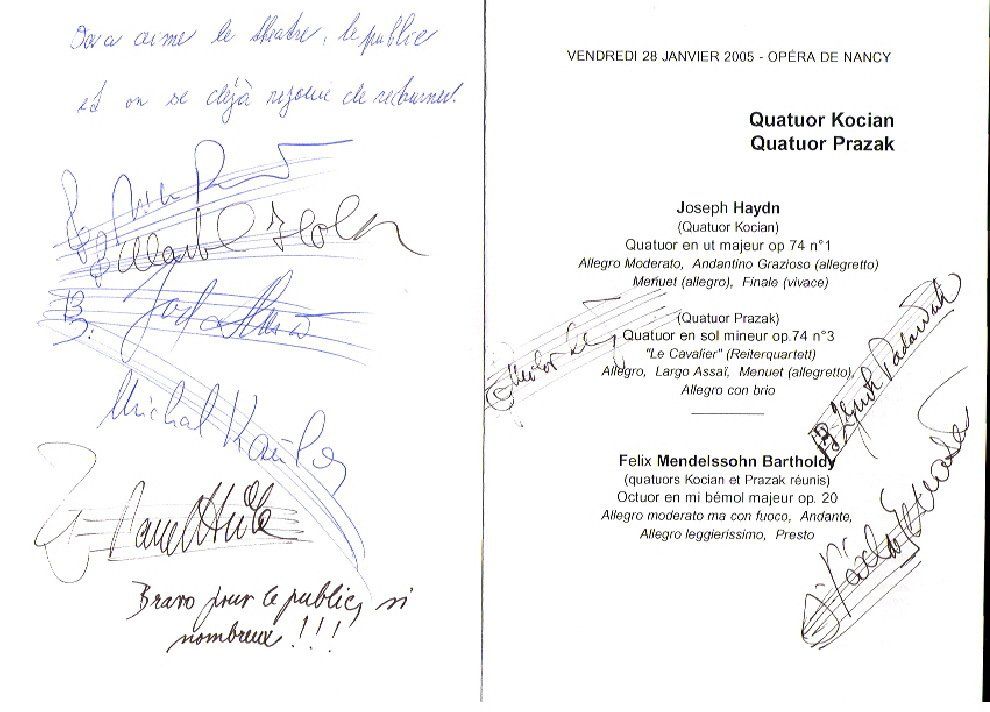 On a aimé le théatre, le public
et on se déjà rejouie de retourner.
Josef
Michal Kaňka
Pavel Hůla
Bravo pour le public, si
nombreux !!!
VENDREDI 28 JANVIER 2005 - OPÉRA DE NANCY
Quatuor Kocian
Quatuor Prazak
Joseph Haydn
(Quatuor Kocian)
Quatuor en ut majeur op 74 n°1
Allegro Moderato, Andantino Grazioso (allegretto)
Menuet (allegro), Finale (vivace)
(Quatuor Prazak)
Quatuor en sol mineur op.74 n°3
"Le Cavalier" (Reiterquartett)
Allegro, Largo Assai, Menuet (allegretto),
Allegro con brio
Felix Mendelssohn Bartholdy
(quatuors Kocian et Prazak réunis)
Octuor en mi bémol majeur op. 20
Allegro moderato ma con fuoco, Andante,
Allegro leggierissimo, Presto